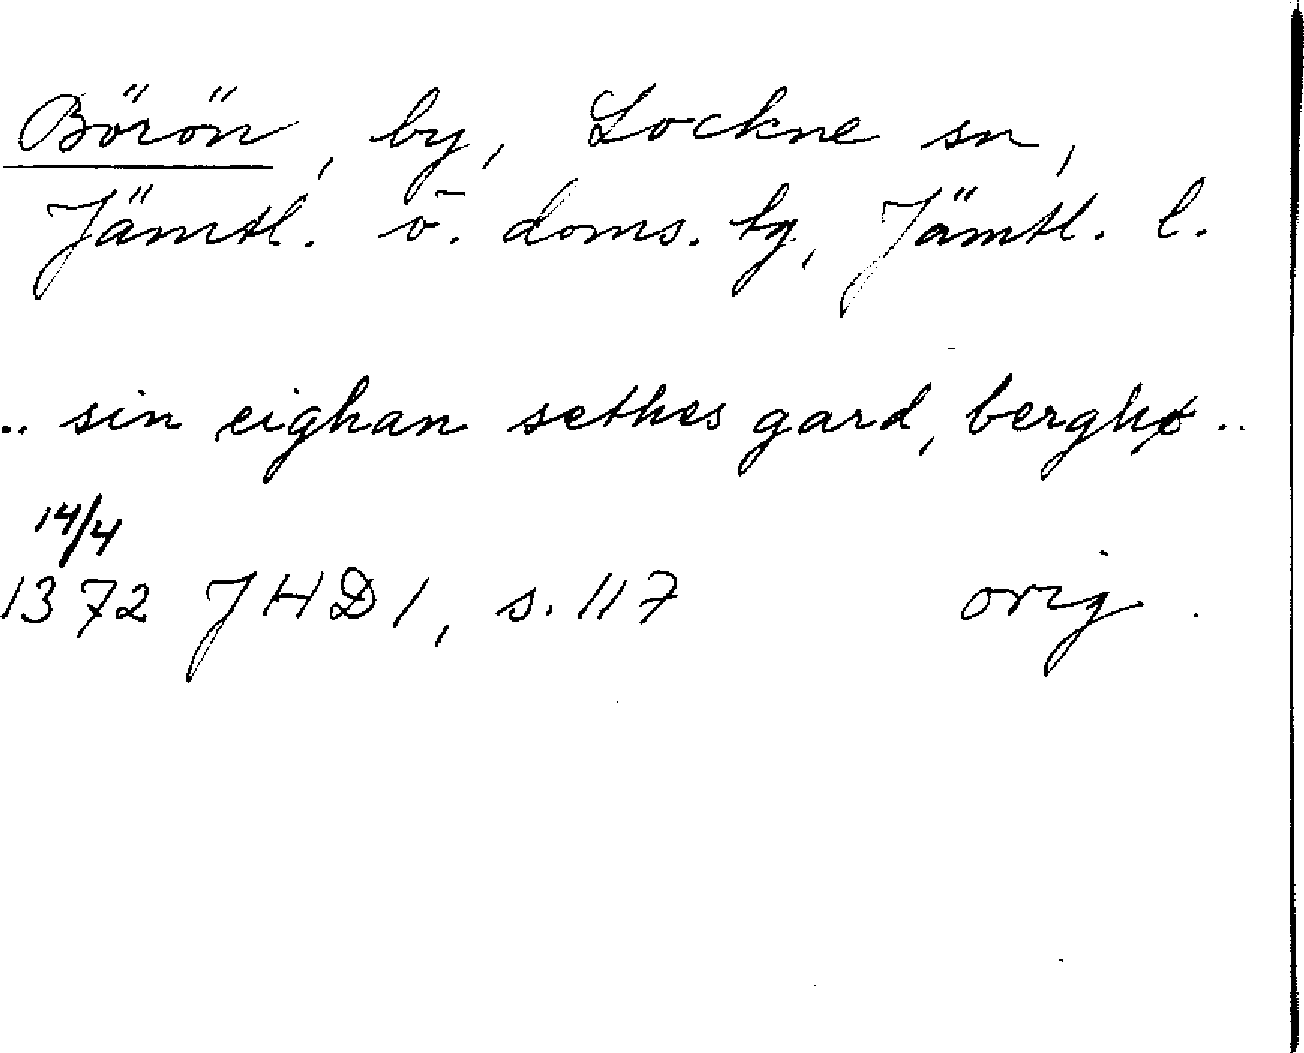 Börön, by, Lockne sn,
Jämtl. ö. doms. tg, Jämtl. l.
.. sin eighan sethes gard, berghø ..
14/4
1372 JHD 1, s. 117 orig.